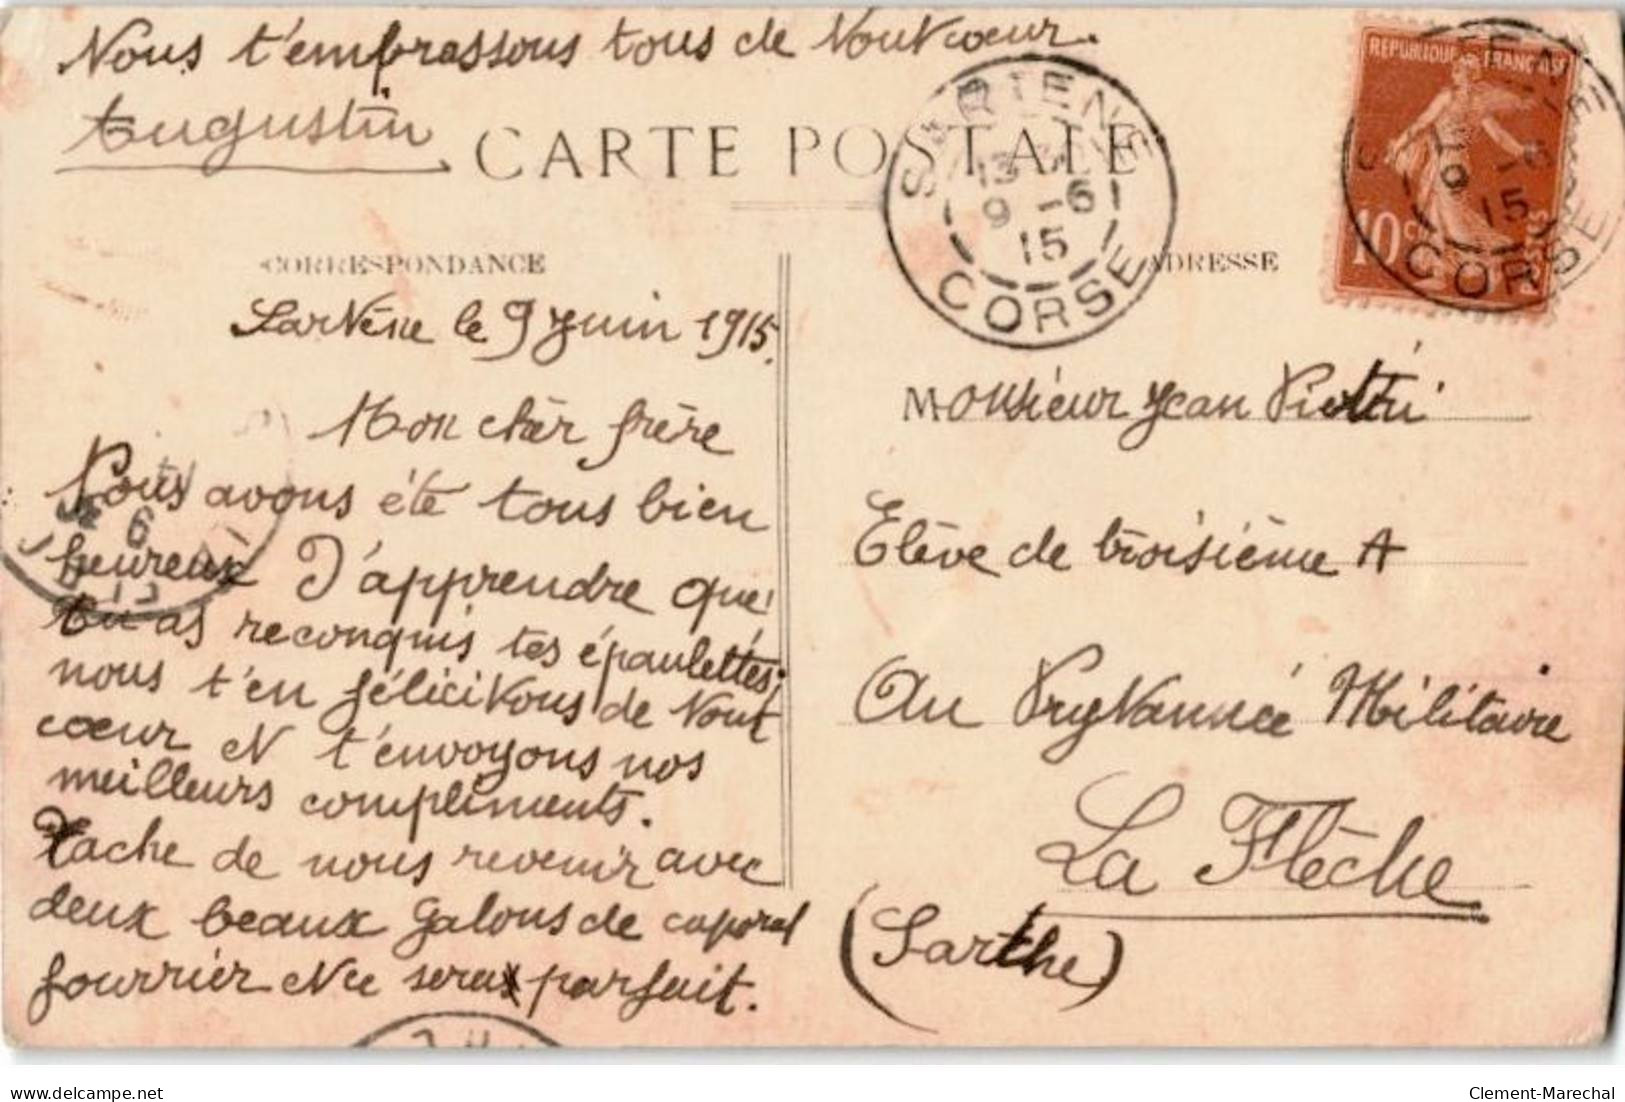 Nous t'embrassons tous de tout cœur.
Augustin
CARTE POSTALE
CORRESPONDANCE
ADRESSE
SARTENE
13
9 -6
15
CORSE
REPUBLIQUE FRANÇAISE
10c
POSTES
9 -6
15
CORSE
Sartène le 9 Juin 1915.
Mon chèr frère
Nous avons été tous bien
heureux D'apprendre que
tu as reconquis tes épaulettes,
nous t'en félicitons de tout
cœur et t'envoyons nos
meilleurs compliments.
Tache de nous revenir avec
deux beaux galons de caporal
fourrier et ce sera parfait.
Monsieur Jean Piétri
Elève de troisième A
Au Prytannée Militaire
La Flèche
(Sarthe)
delcampe.net
Clement-Marechal